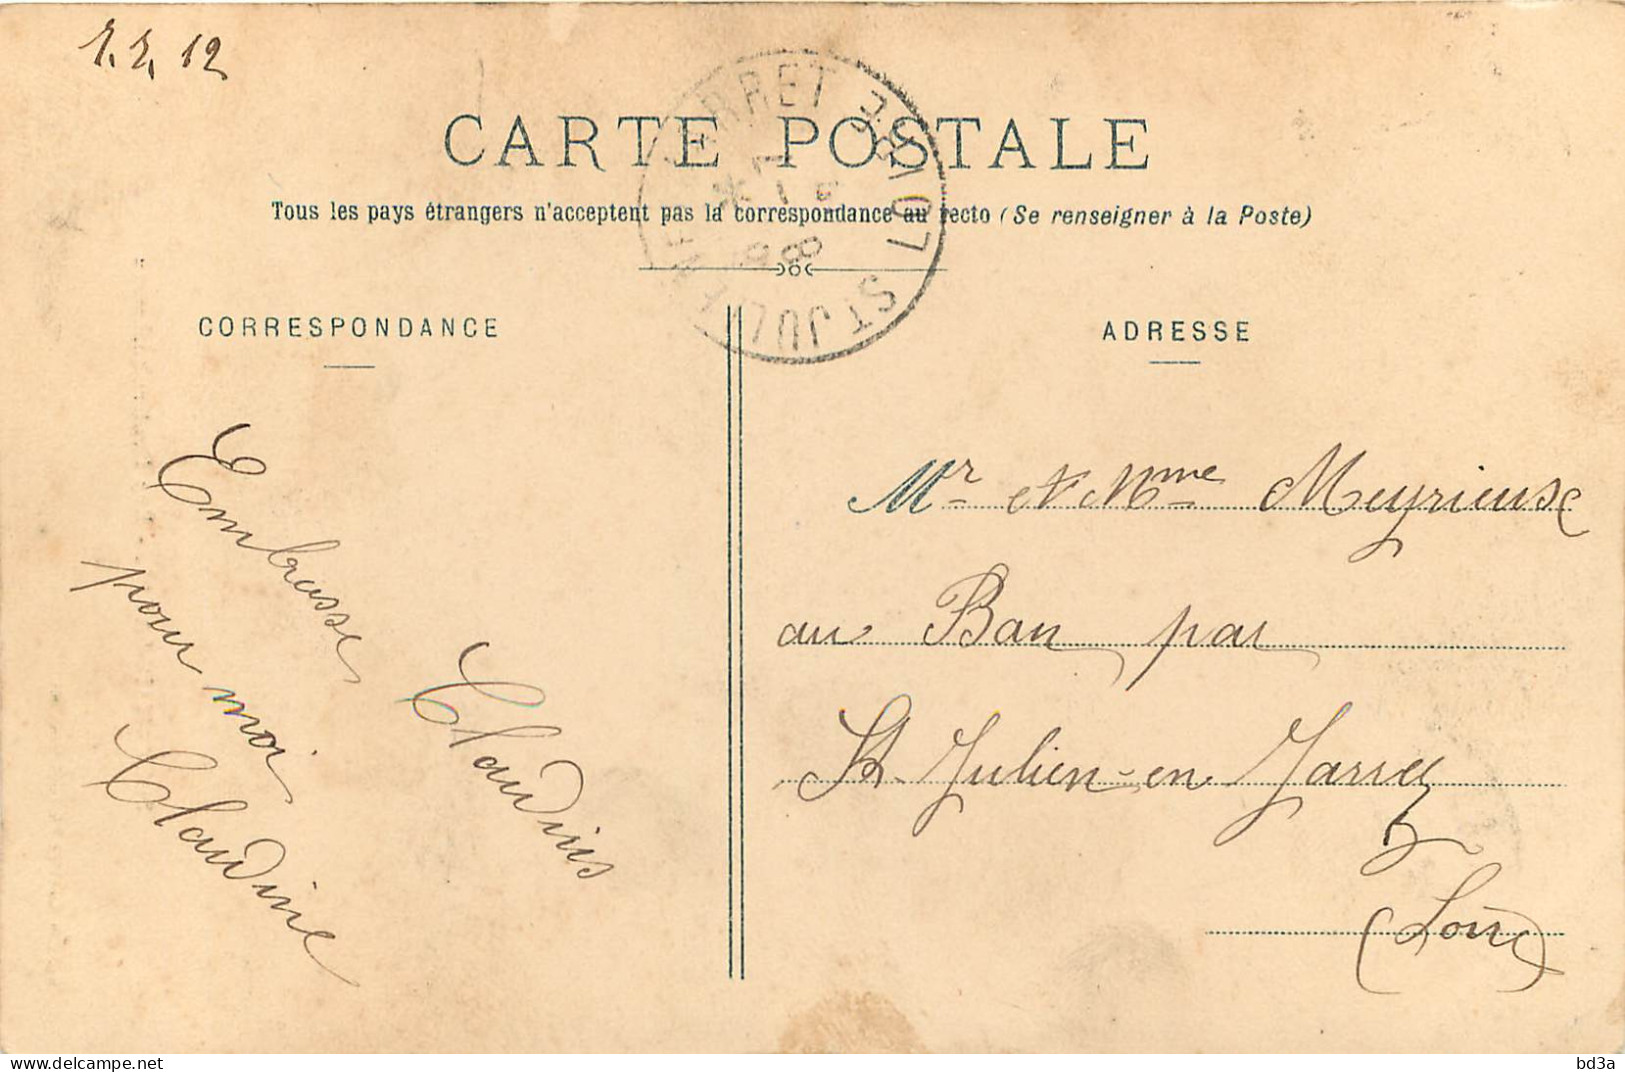 CARTE POSTALE
Tous les pays étrangers n'acceptent pas la correspondance au recto (Se renseigner à la Poste)
CORRESPONDANCE
ADRESSE
Embrasse
pour moi
Claudine
Claudius
Mr et Mme Meyrieuse
au Ban par
St Julien-en Jarrez
(Loire)
ST JULIEN EN JARRET LOIRE
delcampe.net
bd3a